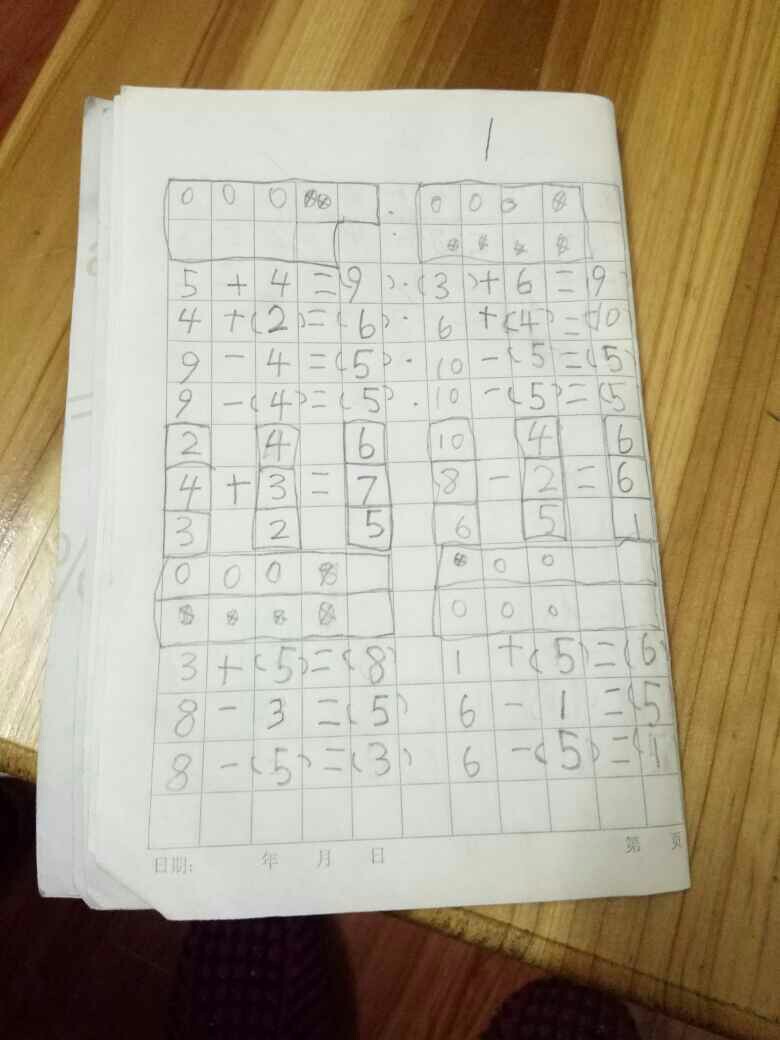 1
5 + 4 = 9 ) · ( 3 ) + 6 = 9
4 + ( 2 ) = ( 6 ) · 6 + ( 4 ) = ( 10
9 - 4 = ( 5 ) · 10 - ( 5 = ( 5 )
9 - ( 4 ) = ( 5 ) . 10 - ( 5 ) = ( 5
2 4 6 10 4 6
4 + 3 = 7 8 - 2 = 6
3 2 5 6 5 1
3 + ( 5 ) = ( 8 ) 1 + ( 5 ) = ( 6 )
8 - 3 = ( 5 ) 6 - 1 = ( 5
8 - ( 5 ) = ( 3 ) 6 - ( 5 ) = ( 1
日期: 年 月 日 第 页